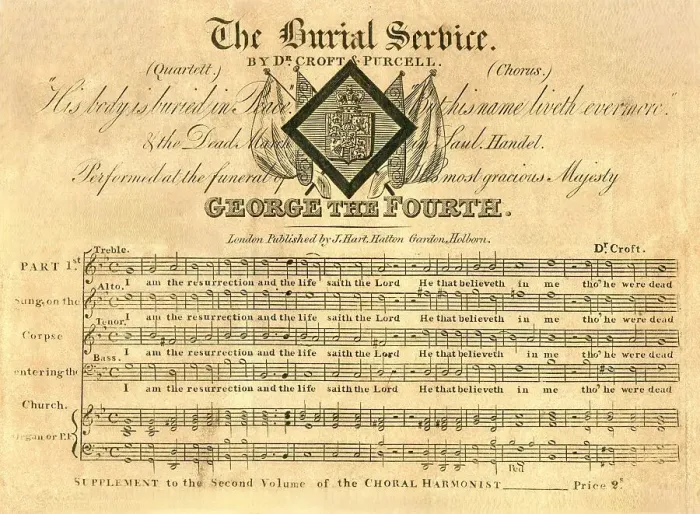 The Burial Service.
BY DR. CROFT & PURCELL.
(Quartett.) (Chorus.)
"His body is buried in Peace." "But his name liveth evermore."
& the Dead March in Saul. Handel.
Performed at the funeral of His most gracious Majesty
GEORGE THE FOURTH.
London Published by J. Hart, Hatton Garden, Holborn.
Treble. Dr. Croft.
PART 1st.
I am the resurrection and the life saith the Lord He that believeth in me tho' he were dead
Alto.
Sung, on the
I am the resurrection and the life saith the Lord He that believeth in me tho' he were dead
Tenor.
Corpse
I am the resurrection and the life saith the Lord He that believeth in me tho' he were dead
Bass.
entering the
I am the resurrection and the life saith the Lord He that believeth in me tho' he were dead
Church.
Organ or P.F.
Ped
SUPPLEMENT to the Second Volume of the CHORAL HARMONIST Price 2s.